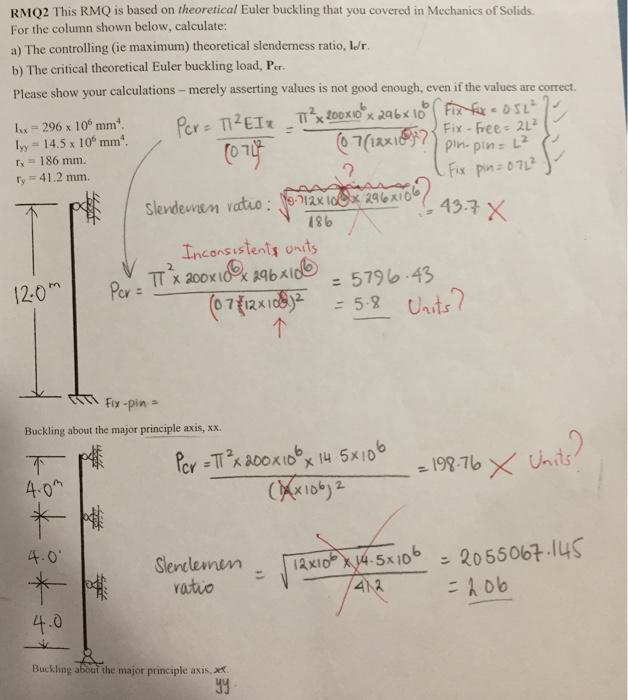 RMQ2 This RMQ is based on theoretical Euler buckling that you covered in Mechanics of Solids.
For the column shown below, calculate:
a) The controlling (ie maximum) theoretical slenderness ratio, le/r.
b) The critical theoretical Euler buckling load, Pcr.
Please show your calculations – merely asserting values is not good enough, even if the values are correct.
Ixx = 296 x 10⁶ mm⁴.
Iyy = 14.5 x 10⁶ mm⁴.
rx = 186 mm.
ry = 41.2 mm.
Pcr = π²EIx / (0.7L)² = π² x 200x10⁶ x 296x10⁶ / (0.7(12x10⁶))² ?
Fix-fix = 0.5L² ? ✓
Fix-free = 2L²
pin-pin = L²
Fix pin = 0.7L² ✓
?
Slendernen ratio : √ 0.712x10⁶ x 296x10⁶ / 186 ? = 43.7 X
Inconsistents units
Pcr = π² x 200x10⁶ x 296x10⁶ / (0.7(12x10⁶))² = 5796.43
= 5.8 Units?
12.0m
Fix-pin =
Buckling about the major principle axis, xx.
Pcr = π² x 200x10⁶ x 14.5x10⁶ / ( x10⁶)² = 198.76 X Units?
4.0m
4.0
4.0
Slendernen ratio = √ 12x10⁶ x 14.5x10⁶ / 41.2 = 2055067.145
= 2.06
Buckling about the major principle axis, xx.
yy